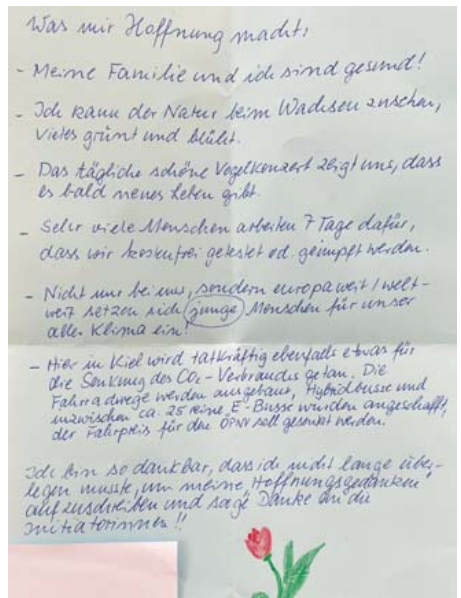 Was mir Hoffnung macht:
- Meine Familie und ich sind gesund!
- Ich kann der Natur beim Wachsen zusehen,
vieles grünt und blüht.
- Das tägliche schöne Vogelkonzert zeigt uns, dass
es bald neues Leben gibt.
- Sehr viele Menschen arbeiten 7 Tage dafür,
dass wir kostenfrei getestet od. geimpft werden.
- Nicht nur bei uns, sondern europaweit / welt-
weit setzen sich junge Menschen für unser
aller Klima ein!
- Hier in Kiel wird tatkräftig ebenfalls etwas für
die Senkung des CO₂-Verbrauchs getan. Die
Fahrradwege werden ausgebaut, Hybridbusse und
inzwischen ca. 25 reine E-Busse wurden angeschafft,
der Fahrpreis für den ÖPNV soll gesenkt werden.
Ich bin so dankbar, dass ich nicht lange über-
legen musste, um meine "Hoffnungsgedanken"
aufzuschreiben und sage Danke an die
Initiatorinnen!!